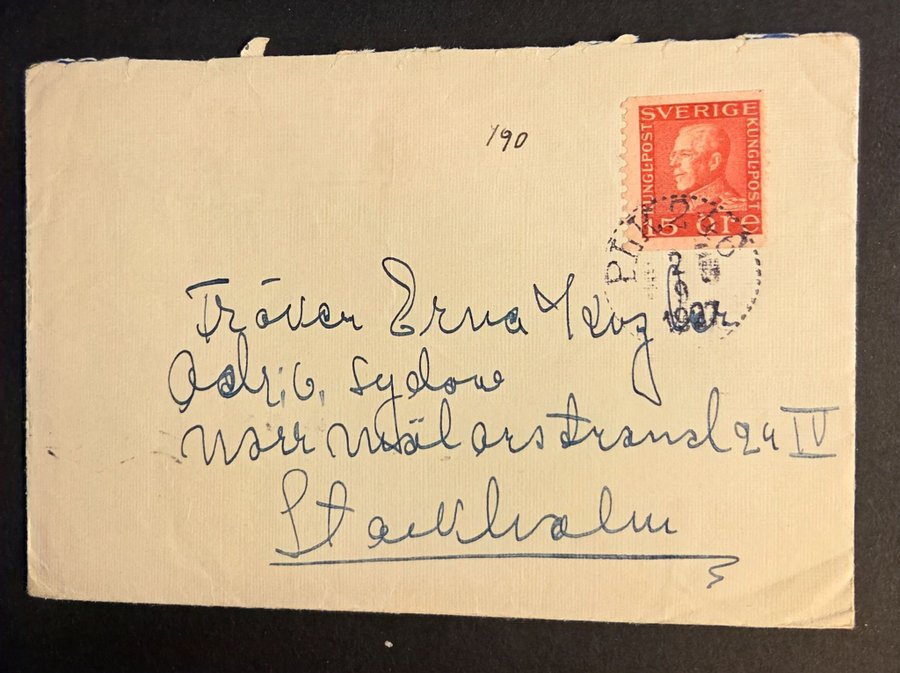 190
SVERIGE
KUNGL·POST
KUNGL·POST
15 öre
2
9
1927
Fröken Erna
Adr. v. Sydow
Norr Mälarstrand 24 IV
Stockholm